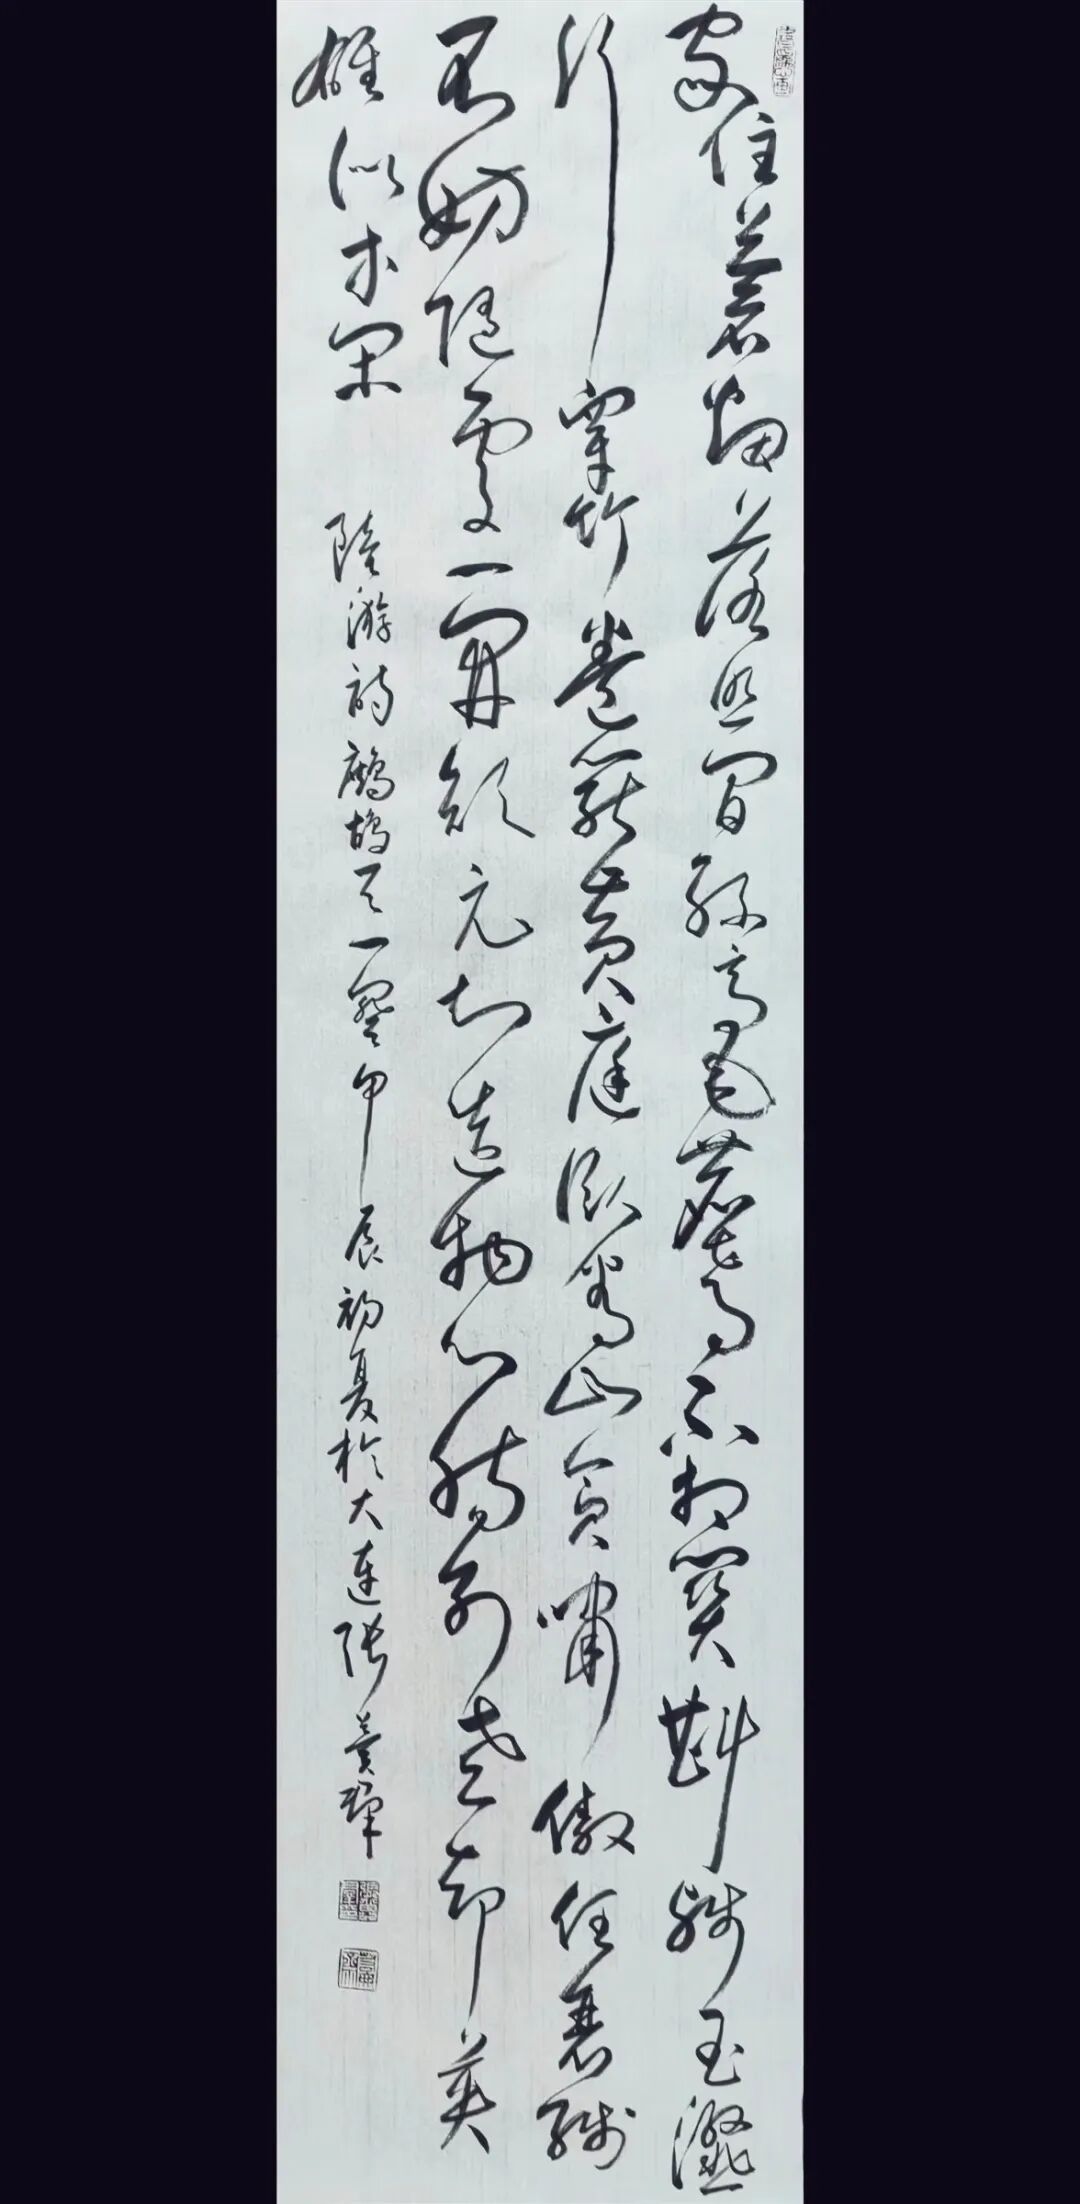 家住蒼烟落照間絲毫塵事不相關斟殘玉瀣
行穿竹卷罷黄庭臥看山貪嘯傲任衰殘
不妨隨處一開顏元知造物心腸別老却英
雄似等閑 陸游詩鷓鴣天一闋甲辰初夏於大連張